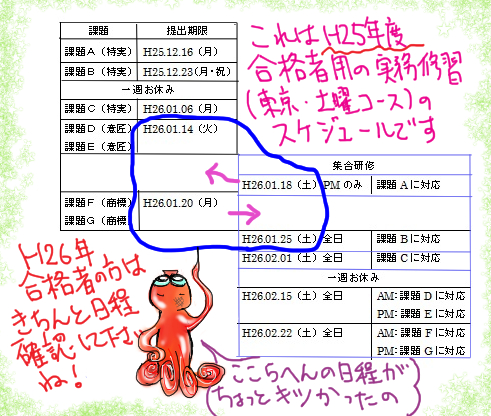 課題 提出期限
課題A（特実） H25.12.16（月）
課題B（特実） H25.12.23（月・祝）
一週お休み
課題C（特実） H26.01.06（月）
課題D（意匠） H26.01.14（火）
課題E（意匠）
課題F（商標 H26.01.20（月）
課題G（商標
これはH25年度
合格者用の実務修習
(東京・土曜コース)の
スケジュールです
集合研修
H26.01.18（土） PMのみ 課題Aに対応
H26.01.25（土） 全日 課題Bに対応
H26.02.01（土） 全日 課題Cに対応
一週お休み
H26.02.15（土） 全日 AM：課題Dに対応
PM：課題Eに対応
H26.02.22（土） 全日 AM：課題Fに対応
PM：課題Gに対応
H26年
合格者の方は
きちんと日程
確認して下さい
ね！
ここらへんの日程が
ちょっとキツかったの